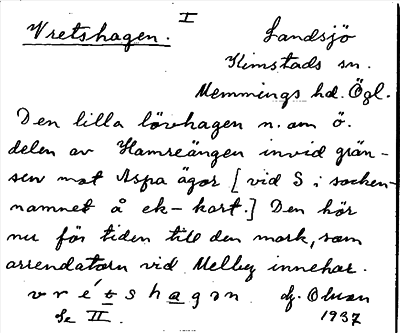 I
Vretshagen.
Landsjö
Kimstads sn.
Memmings hd. Ögl.
Den lilla lövhagen n. om ö.
delen av Hamreängen invid grän-
sen mot Aspa ägor [vid S i socken-
namnet å ek-kort.] Den hör
nu för tiden till den mark, som
arrendatorn vid Melby innehar.
v r é t s h a g ə n
Se II.
1937